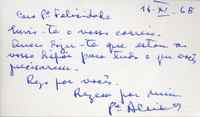 14-XI-68
Caro Pe Felicidade
Envio-te o vosso correio.
Quero dizer-te que estou ao
vosso dispor para tudo o que vocês
precisarem.
Rezo por vocês.
Rezem por mim
Pe